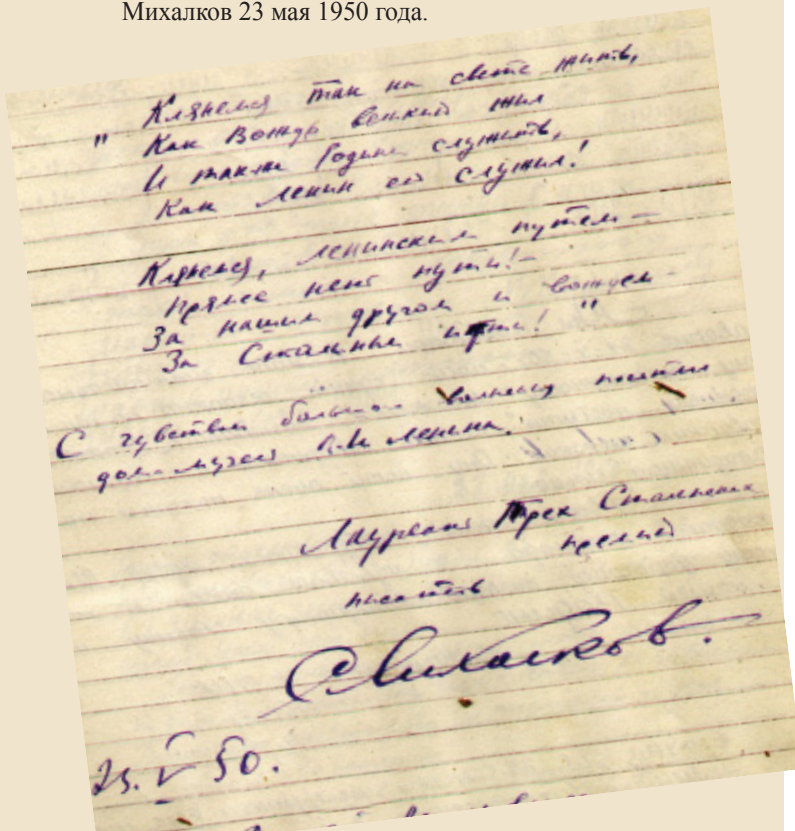 Михалков 23 мая 1950 года.
" Клянемся так на свете жить,
Как Вождь великий жил
И также Родине служить,
Как Ленин ей служил!
Клянемся, ленинским путем –
Прямее нет пути! –
За нашим другом и вождем –
За Сталиным идти! "
С чувством большого волнения посетил
дом-музей В.И. Ленина.
Лауреат Трех Сталинских
премий
писатель
С Михалков.
23. V 50.